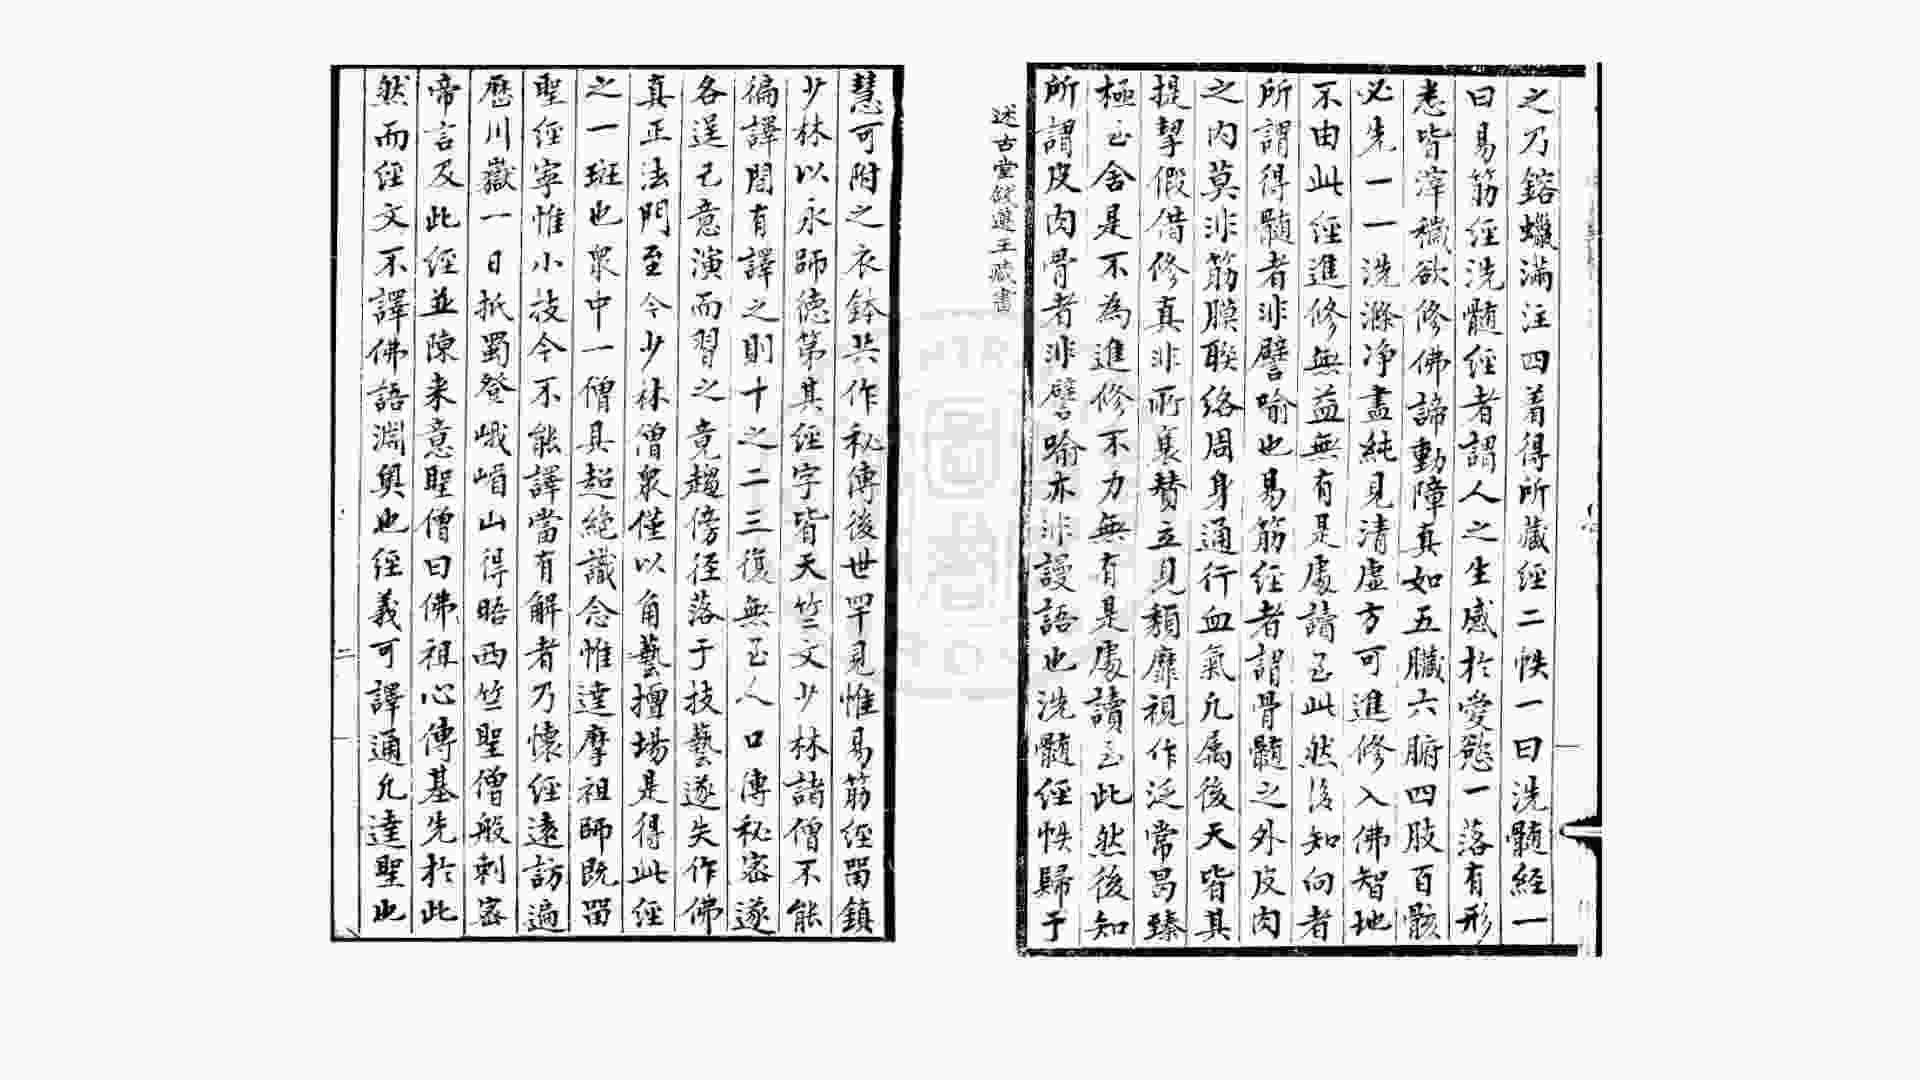 之乃鎔蠟滿注四着得所藏經二帙一曰洗髓經一
曰易筋經洗髓經者謂人之生感於愛慾一落有形
悉皆滓穢欲修佛諦動障真如五臟六腑四肢百骸
必先一一洗滌净盡純見清虛方可進修入佛智地
不由此經進修無益無有是處讀至此然後知向者
所謂得髓者非譬喻也易筋經者謂骨髓之外皮肉
之内莫非筋膜聯絡周身通行血氣凢属後天皆其
提挈假借修真非所襄賛立見頽靡視作泛常曷臻
極至舍是不為進修不力無有是處讀至此然後知
所謂皮肉骨者非譬喻亦非謾語也洗髓經帙歸于
述古堂錢遵王藏書
慧可附之衣鉢共作秘傳後世罕見惟易筋經畱鎮
少林以永師德第其經字皆天竺文少林諸僧不能
徧譯間有譯之則十之二三復無至人口傳秘密遂
各逞己意演而習之竟趨傍徑落于技藝遂失作佛
真正法門至今少林僧衆僅以角藝擅場是得此經
之一班也衆中一僧具超絶識念惟達摩祖師既畱
聖經寧惟小技今不能譯當有解者乃懷經遠訪遍
歷川嶽一日抵蜀登峨嵋山得晤西竺聖僧般刺密
帝言及此經並陳来意聖僧曰佛祖心傳基先於此
然而經文不譯佛語淵奥也經義可譯通凢達聖也
二